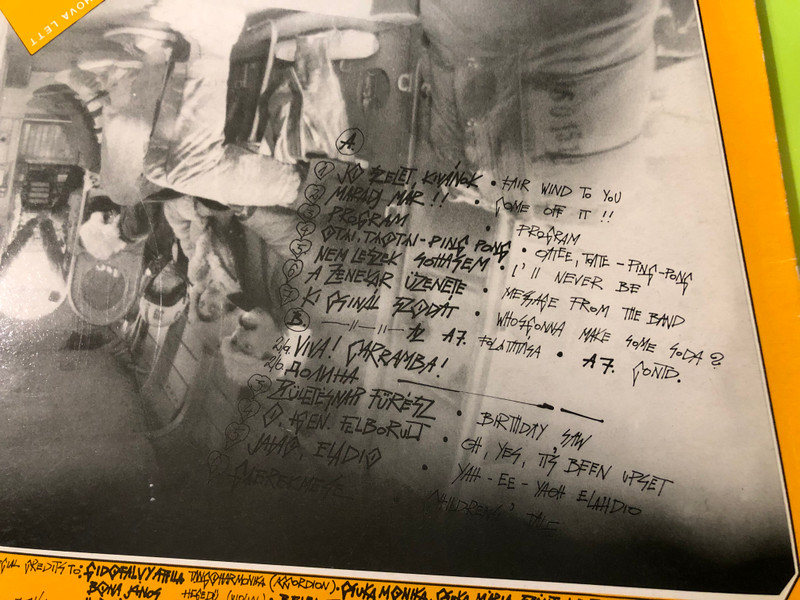 NOVA LETT
A.
1 JÓ SZELET KIVÁNOK • FAIR WIND TO YOU
2 MARADJ MÁR !! • COME OFF IT !!
3 PROGRAM • PROGRAM
4 OTAI, TAOTAI - PING PONG • OTTEE, TATE - PING-PONG
5 NEM LESZEK SOHASEM • I'LL NEVER BE
6 A ZENEKAR ÜZENETE • MESSAGE FROM THE BAND
7 KI CSINÁL SZÓDÁT • WHO'S GONNA MAKE SOME SODA ?
B. 1 —"—"— AZ A7. FOLYTATÁSA • A7. CONTD.
2/a. VIVA! CARRAMBA!
2/b. ДОЛИНА
SZÜLETÉSNAP FŰRÉSZ • BIRTHDAY SAW
Ó, IGEN. FELBORULT • OH, YES, IT'S BEEN UPSET
JAIAÓ, ELADIO • YAH - EE - YAOH ELAHDIO
GYEREKMESE • CHILDRENS' TALE
CREDITS TO: GIDÓFALVY ATTILA TANGÓHARMONIKA (ACCORDION) • CSUKA MÓNIKA, CSUKA MÁRIA
BÓNA JÁNOS HEGEDŰ (VIOLIN)